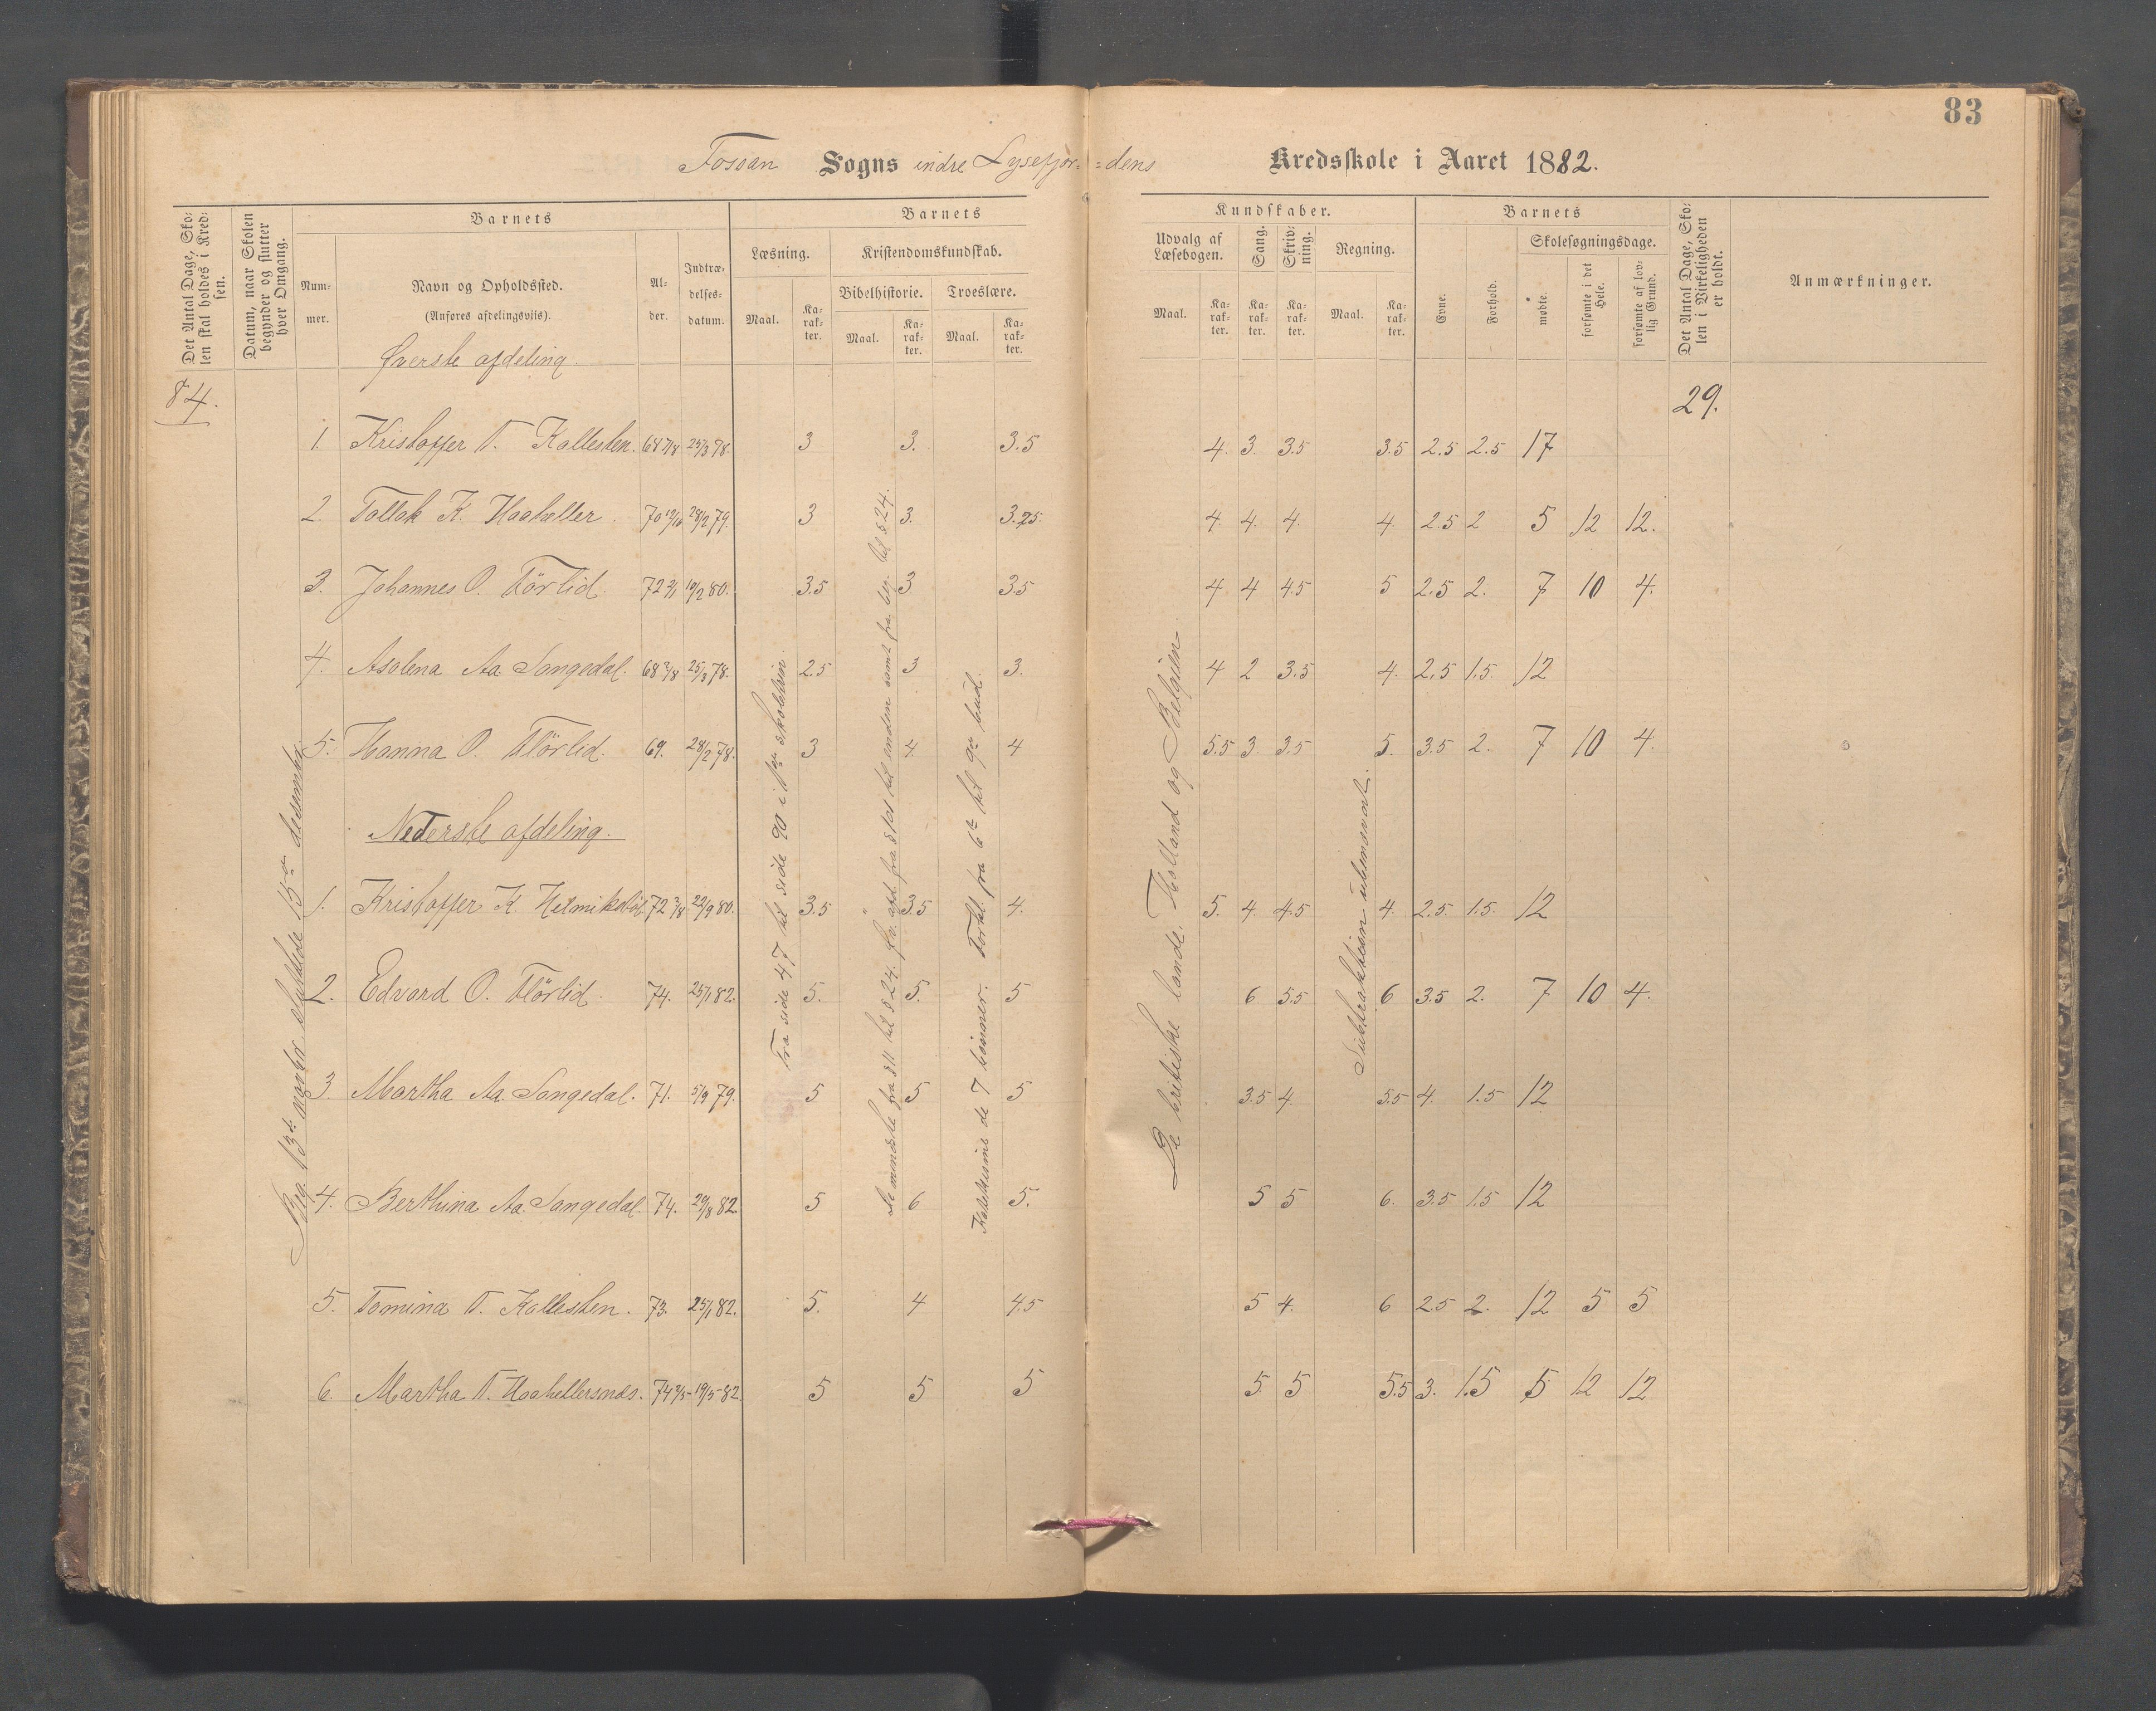 83
Fossan Sogns indre Lysefjor-=dens Kredsskole i Aaret 1882.
Det Antal Dage, Sko-len skal holdes i Kred-sen.
Datum, naar Skolen begynder og slutter hver Omgang.
Barnets
Num-mer.
Navn og Opholdssted.
(Anføres afdelingsviis).
Al-der.
Indtræ-delses-datum.
Barnets
Læsning.
Maal.
Ka-rak-ter.
Kristendomskundskab.
Bibelhistorie.
Maal.
Ka-rak-ter.
Troeslære.
Maal.
Ka-rak-ter.
Kundskaber.
Udvalg af Læsebogen.
Maal.
Ka-rak-ter.
Sang.
Ka-rak-ter.
Skriv-ning.
Ka-rak-ter.
Regning.
Maal.
Ka-rak-ter.
Barnets
Evne.
Forhold.
Skolesøgningsdage.
mødte.
forsømte i det Hele.
forsømte af lov-lig Grund.
Det Antal Dage, Sko-len i Virkeligheden er holdt.
Anmærkninger.
Øverste afdeling.
84.
29.
1. Kristoffer T. Kallesten. 68 7/8 25/3 78. 3 3. 3.5 4. 3. 3.5 3.5 2.5 2.5 17
2. Tollak K. Haaheller 70 28/2 79. 3 3. 3.25 4. 4. 4. 4. 2.5 2 5 12 12.
3. Johannes O. Flörlid. 72 10/2 80. 3.5 3 3.5 4 4 4.5 5 2.5 2. 7 10 4.
4. Asolena Aa. Songedal. 68 25/3 78. 2.5 3 3. 4 2 3.5 4. 2.5 1.5. 12
5. Hanna O. Flörlid. 69. 28/2 78. 3 4 4 5.5 3. 3.5 5. 3.5 2. 7 10 4.
Nederste afdeling.
1. Kristoffer K. 72 80. 3.5 3.5 4. 5. 4. 4.5 4. 2.5. 1.5. 12
2. Edvard O. Flörlid. 74. 25/1 82. 5. 5. 5 6 5.5 6 3.5 2. 7 10 4.
3. Martha Aa. Songedal. 71. 5/9 79. 5 5 5 3.5 4. 5.5 4. 1.5 12
4. Berthina Aa. Songedal. 74. 29/8 82. 5 6 5. 5 5 6. 3.5 1.5 12
5. Tomina T. Kallesten. 73. 25/1 82. 5. 4 4.5 5 4. 6 2.5 2. 12 5 5
6. Martha T. Haahellersnæs. 74 19/5 82. 5 5 5 5. 5 5.5 3. 1.5 5 12 12
Beg. 13de novbr sluttede 15de desember.
Fra side 47 til side 90 i 1ste skoletrin
De mindste fra § 11 til § 24. Øv. afd. fra § 101 til enden samt fra beg. til § 24.
Katekisme de 7 bønner. Forkl. fra 6te til 9de bud.
De britiske lande. Holland og Belgien.
Subtraktion ubenævnt.